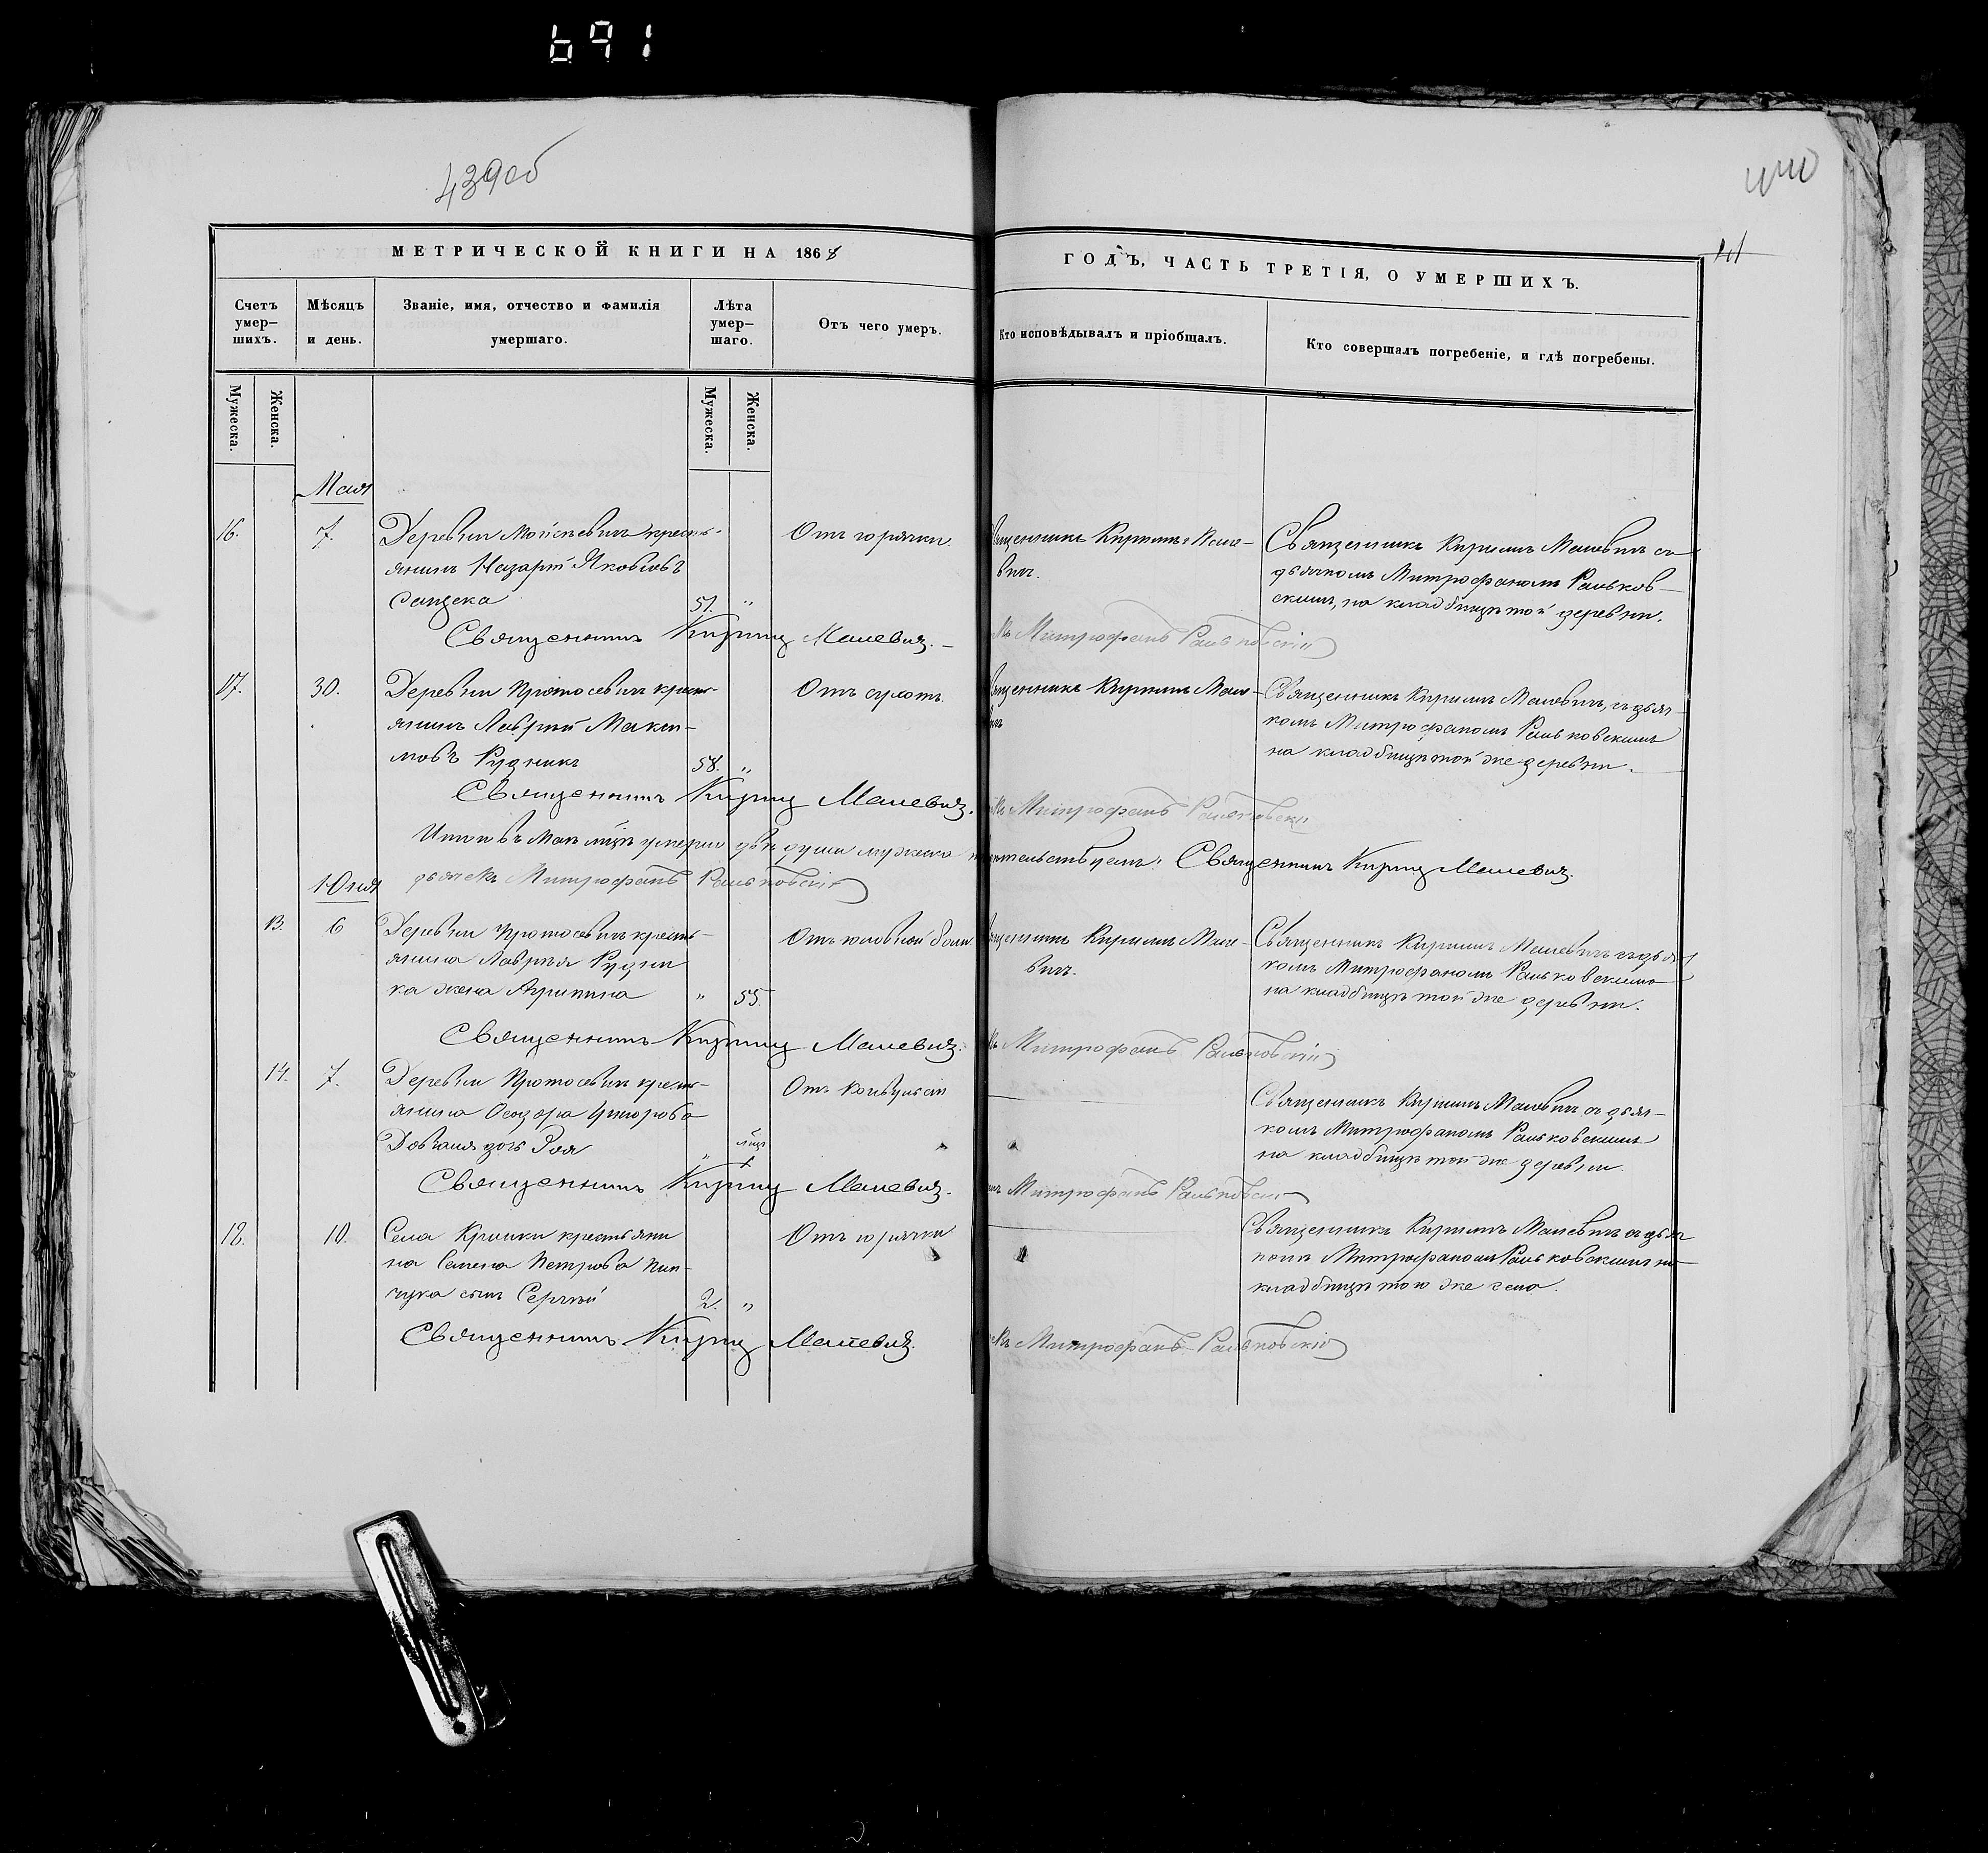 691
439об
440
МЕТРИЧЕСКОЙ КНИГИ НА 1868
ГОДЪ, ЧАСТЬ ТРЕТІЯ, О УМЕРШИХЪ.
Счетъ умер–шихъ.
Мѣсяцъ и день.
Званіе, имя, отчество и фамилія умершаго.
Лѣта умер–шаго.
Отъ чего умеръ.
Кто исповѣдывалъ и пріобщалъ.
Кто совершалъ погребеніе, и гдѣ погребены.
Мужеска.
Женска.
Мужеска.
Женска.
Мая
16.
7.
Деревни Мойсѣевичъ кресть-
янинъ Назарій Яковлевъ
51. „
Отъ горячки.
Священникъ Кириллъ Мале-
вичъ.
Священникъ Кириллъ Малевичъ съ
дьячкомъ Митрофаномъ Раьков-
скимъ, на кладбищѣ той деревни.
Священникъ Кириллъ Малевичъ. –
Митрофанъ
17.
30.
Деревни Протосевичъ кресть-
янинъ Лаврѣй Макси-
мовъ Рудникъ
58. „
Отъ сухотъ.
Священникъ Кириллъ Мале-
вичъ
Священникъ Кириллъ Малевичъ, съ дьяч-
комъ Митрофаномъ Раьковскимъ
на кладбищѣ той же деревни.
Священникъ Кириллъ Малевичъ.
Митрофанъ
Итого въ Маѣ мцѣ умерло двѣ души мужеска Священникъ Кириллъ Малевичъ.
дьячекъ Митрофанъ
Іюня
13.
6
Деревни Протосевичъ кресть-
янина Лаврѣя Рудни
ка жена Агрипина
„ 55.
Отъ головной боли
Священникъ Кириллъ Мале-
вичъ.
Священникъ Кириллъ Малевичъ съ дьяч
комъ Митрофаномъ Раьковскимъ
на кладбищѣ той же деревни.
Священникъ Кириллъ Малевичъ.
Митрофанъ
14.
7.
Деревни Протосевичъ кресть-
янина
дочь Зоя
„
Отъ конвульсіи
Священникъ Кириллъ Малевичъ съ дьяч-
комъ Митрофаномъ Раьковскимъ
на кладбищѣ той же деревни.
Священникъ Кириллъ Малевичъ.
Митрофанъ
18.
10.
Села Кришки крестьяни
на Семена Петрова Пин-
чука сынъ Сергѣй
2. „
Отъ горячки
Священникъ Кириллъ Малевичъ съ дьяч
комъ Митрофаномъ Раьковскимъ на
кладбищѣ того же села.
Священникъ Кириллъ Малевичъ.
Митрофанъ